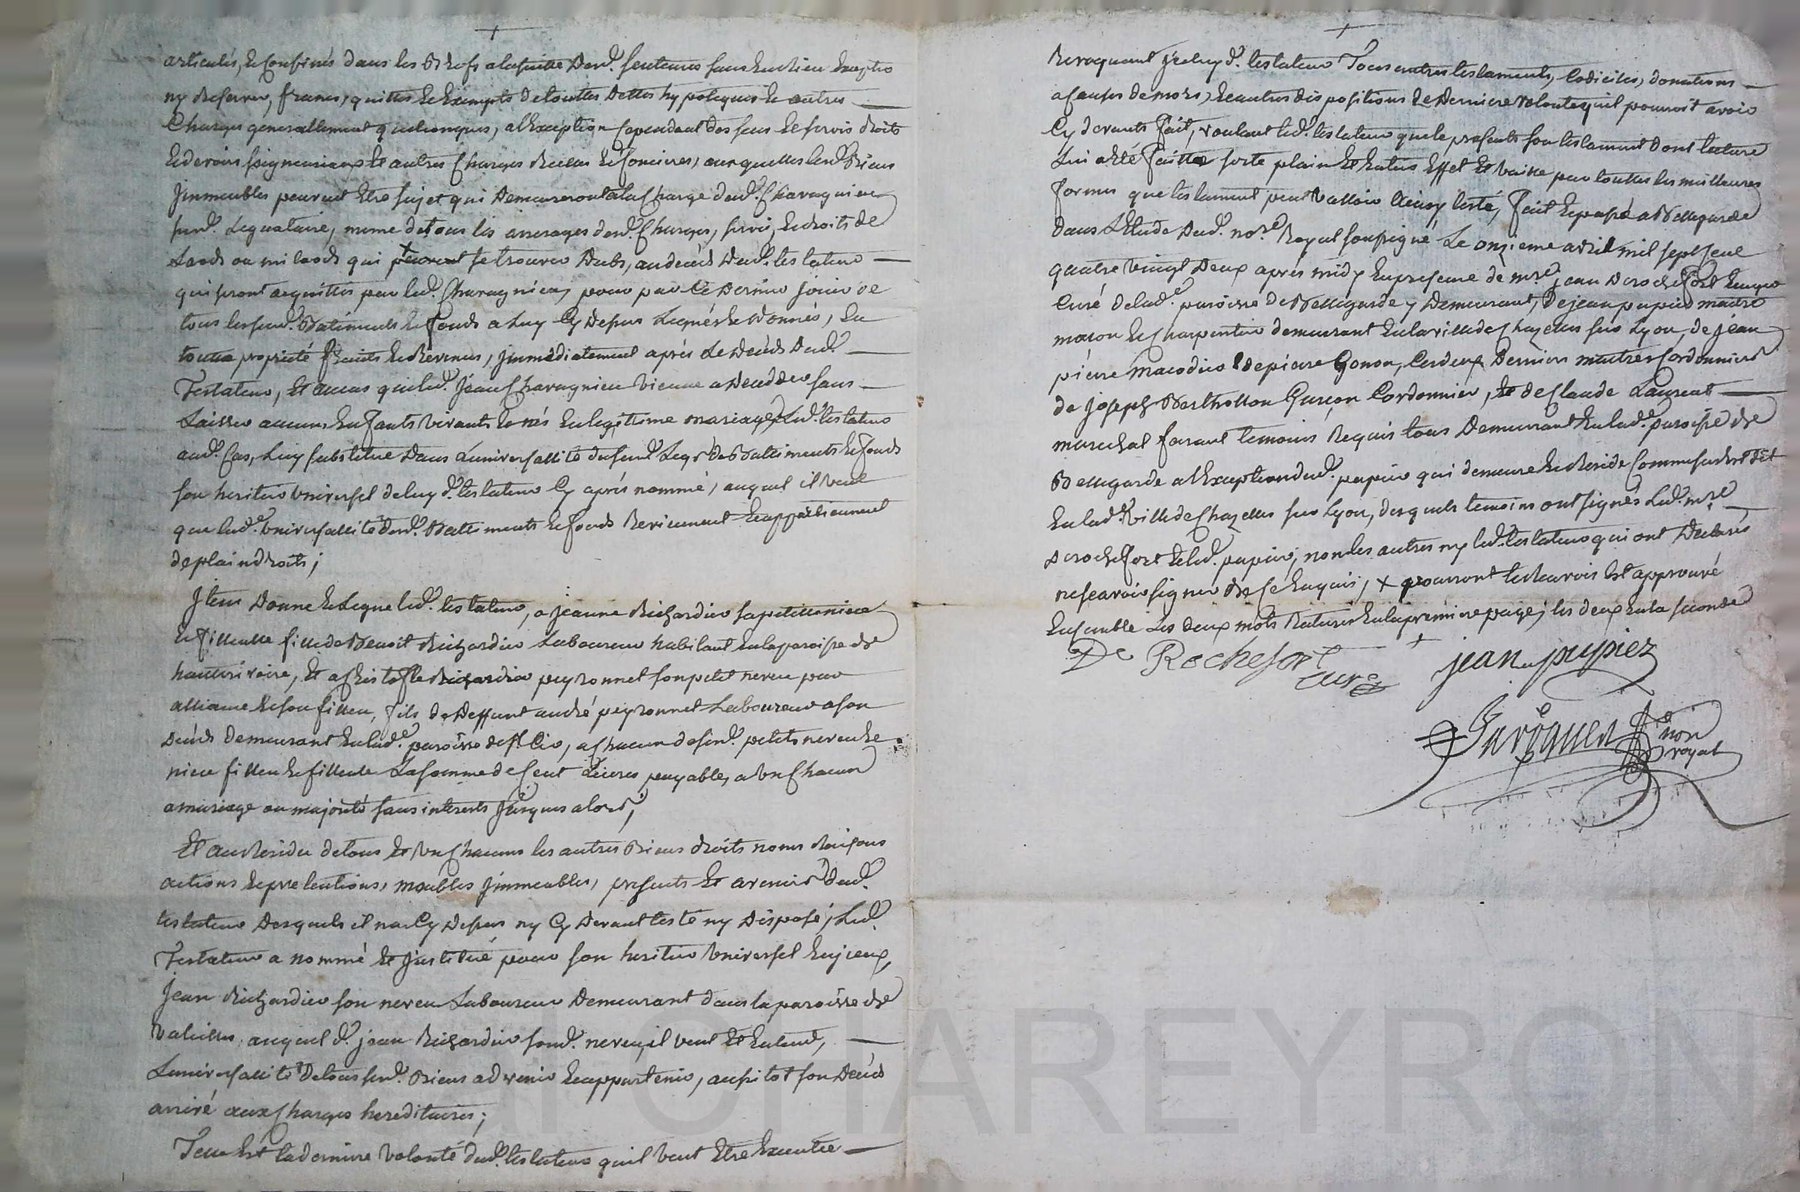 articulés, et Confinés dans les Brefs a la suitte desd. sentences sans en rien Excepter
ny Reserver, francs, quittes et Exempts de touttes dettes hypoteques et autres
Charges generallement quelconques, a l'Exception Cependant des sens et servis droits
et devoirs seigneuriaux et autres Charges Reelles et foncieres, auxquelles lesd. Biens
Jmmeubles peuvent Etre sujet qui demeureront a la Charge dud. Charagnieu
susd. Leguataire, meme de tous les arrerages desd. Charges, servis, et droits de
Laods ou milaods qui se trouver dubs, au decés dud. testateur
qui seront acquittés par led. Charagnieu, pour par Ce dernier jouir de
tous les susd. Batiments et fonds a luy Cy dessus Legués et donnés, en
toutte proprieté fruits et Revenus, jmmédiatement aprés le decés dud.
Testateur, Et au cas que led. Jean Charagnieu vienne a deceder sans
Laisser aucuns Enfants vivants et nés en legitime mariage, led. testateur
aud. Cas, luy substitue dans l'universallité du susd. Legs de Battiments et fonds
son heritier universel de luy d. testateur Cy aprés nommé, auquel il veut
que lad. universallité desd. Battiments et fonds Reviennent et appartiennent
de plain droits;
Jtem donne et Legue led. testateur, a jeanne Richardier sa petitte niece
et filleulle fille de Benoit Richardier Laboureur habitant en la paroisse de
hautterivoire, Et a Christofle peyronnet son petit neveu par
alliance et son filleu, fils de deffunt andré peyronnet Laboureur a son
decés demeurant en lad. paroisse de St Cir, a Chacun desd. petits neveu et
niece filleu et filleule La somme de Cent Livres payables, a un Chacun
a mariage ou majorité sans interets jusques alors;
Et au Residu de tous Et un Chacuns les autres Biens droits noms Raisons
actions et pretentions, meubles jmmeubles, presents Et avenir dud.
testateur desquels il n'a Cy dessus ny Cy devant testé ny disposé, Led.
Testateur a nommé Et jnstitué pour son heritier universel
Jean Richardier son neveu Laboureur demeurant dans la paroisse de
auquel d. jean Richardier sond. neveu, il veut Et Entend,
L'universallité de tous sesd. Biens advenir et appartenir, aussitot son decés
arrivé aux Charges hereditaires;
Telle est la derniere volonté dud. testateur qu'il veut Etre Executée
Revoquant jceluy d. testateur Tous autres testaments, Codiciles, donations
a Causes de mort, et autres dispositions de derniere volonté qu'il pourroit avoir
Cy devants fait, voulant led. testateur que le presents son testament dont lecture
lui a Eté faitte sorte plain Et Entier Effet Et vaille par touttes les meilleures
formes que testament peut valloir testé, fait et passé a Bellegarde
dans L'Etude dud. nore. Royal soussigné Le onzieme avril mil sept Cent
quatre vingt deux aprés midy En presence de mre. jean derochefort
Curé de lad. paroisse de Bellegarde y demeurant, de jean pupier maitre
maçon et Charpentier demeurant en la ville de Chazelles sur Lyon, de jean
pierre et de pierre Gonon, Ces deux derniers maitres Cordonniers
de joseph Bartholloin Garçon Cordonnier, Et de Claude Laurent
marechal ferrant temoins Requis tous demeurant En lad. paroisse de
Bellegarde a l'Exception dud. pupier qui demeure et Reside Comme sus est dit
En lad. ville de Chazelles sur Lyon, desquels temoins ont signés Led. mre.
derochefort et led. pupier, non les autres ny led. testateur qui ont declarés
ne sçavoir signer de Ce Enquis, x pourront le Renvois Est approuvé
Ensemble Les deux mots Raturés En la premiere page, les deux En la seconde
De Rochefort
curé
jean pupiez
nore
royal
CHAREYRON